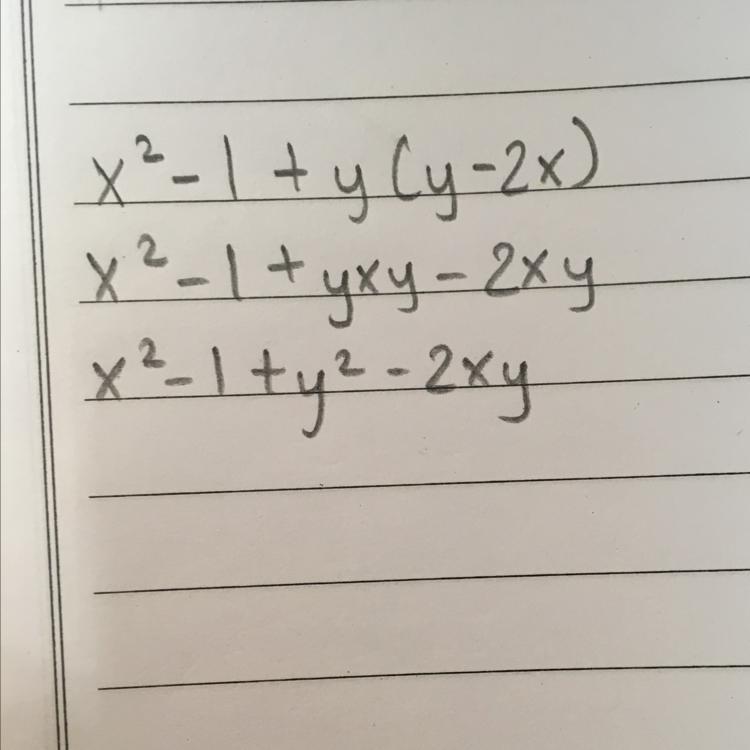 x² - 1 + y (y - 2x)
x² - 1 + yxy - 2xy
x² - 1 + y² - 2xy